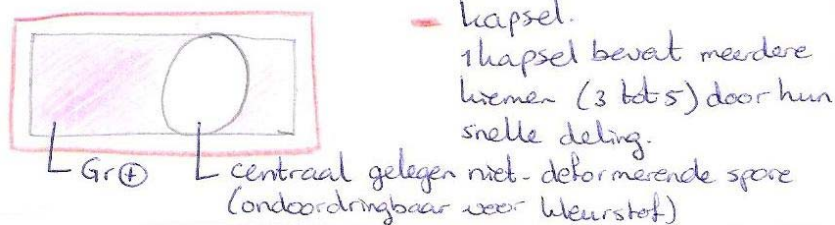 - kapsel.
1 kapsel bevat meerdere
kiemen (3 tot 5) door hun
snelle deling.
Gr⊕
centraal gelegen niet-deformerende spore
(ondoordringbaar voor kleurstof)